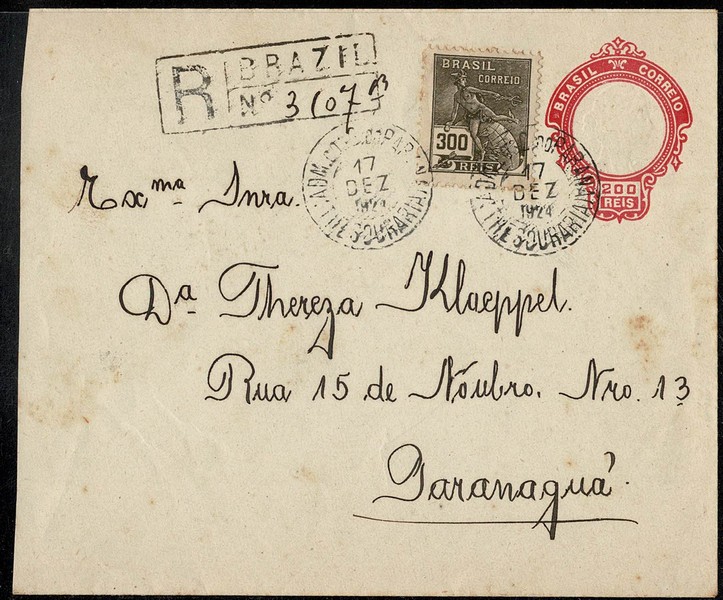 R BRAZIL
Nº 3107 B
BRASIL
CORREIO
300
REIS
BRASIL CORREIO
200
REIS
17
DEZ
1924
THESOURARIA
17
DEZ
1924
THESOURARIA
Exma Snra.
Da Thereza Klaeppel.
Rua 15 de Nóubro. Nro. 13
Paranaguá.